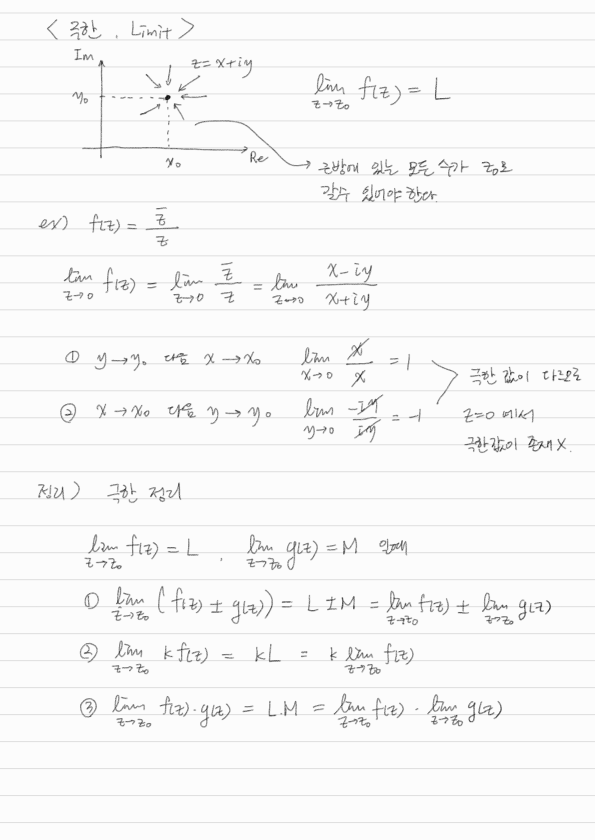 < 극한, Limit >
Im
z = x+iy
y₀
x₀
Re
lim_{z→z₀} f(z) = L
근방에 있는 모든 수가 z₀로
갈수 있어야 한다.
ex) f(z) = z̄/z
lim_{z→0} f(z) = lim_{z→0} z̄/z = lim_{z→0} (x-iy)/(x+iy)
① y→y₀ 다음 x→x₀ lim_{x→0} x/x = 1
② x→x₀ 다음 y→y₀ lim_{y→0} -iy/iy = -1
극한 값이 다르므로
z=0 에서
극한값이 존재X.
정리) 극한 정리
lim_{z→z₀} f(z) = L , lim_{z→z₀} g(z) = M 일때
① lim_{z→z₀} (f(z) ± g(z)) = L ± M = lim_{z→z₀} f(z) ± lim_{z→z₀} g(z)
② lim_{z→z₀} k f(z) = kL = k lim_{z→z₀} f(z)
③ lim_{z→z₀} f(z)·g(z) = L.M = lim_{z→z₀} f(z) · lim_{z→z₀} g(z)